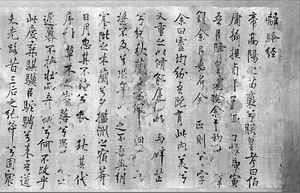 離騷經
帝高陽之苗裔兮朕皇考曰伯
庸攝提貞于孟陬兮惟庚寅
吾以降皇覽揆余初度兮
錫余以嘉名名余曰正則兮字
余曰靈均紛吾既有此內美兮
又重之以脩能扈江離與辟芷
兮紉秋蘭以為佩汩余
不及兮恐年歲之不吾與
搴阰之木蘭兮夕攬洲之宿莽
日月忽其不淹兮春與秋其代
序惟草木之零落兮恐
遲暮不撫壯而棄穢兮何不改乎
此度乘騏驥以馳騁兮來吾道
夫先路昔三后之純粹兮固眾